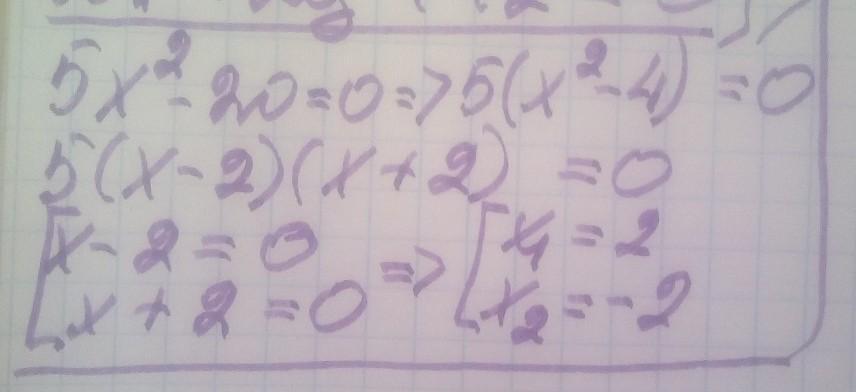 5x² - 20 = 0 => 5(x² - 4) = 0
5(x - 2)(x + 2) = 0
[x - 2 = 0 => [x₁ = 2
x + 2 = 0 x₂ = -2